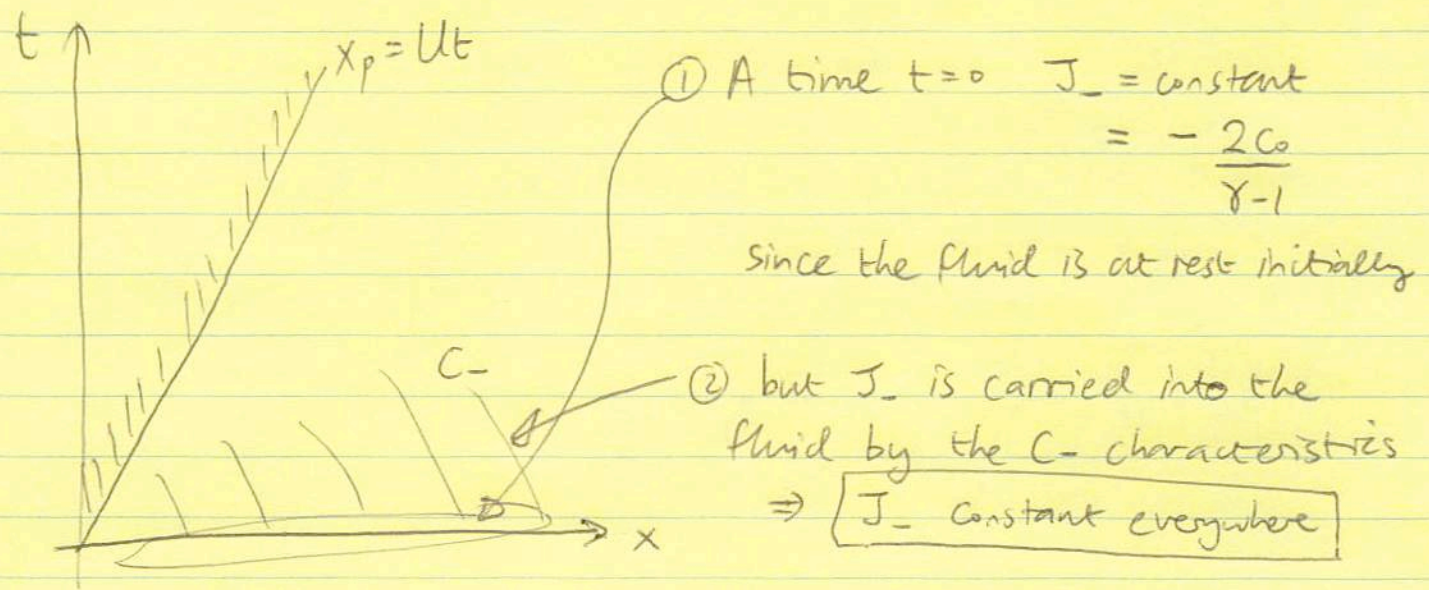 t
xₚ = Ut
① A time t=0 J₋ = constant
= - 2c₀ / γ-1
since the fluid is at rest initially
C₋
② but J₋ is carried into the
fluid by the C₋ characteristics
⇒ J₋ constant everywhere
x